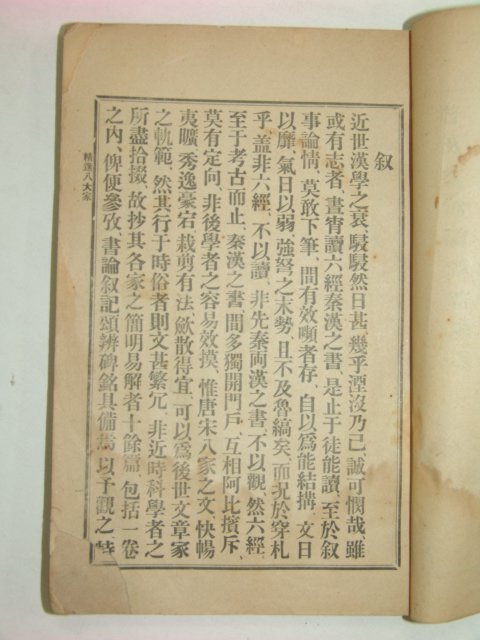 叙
近世漢學之衰、駸駸然日甚、幾乎湮沒乃已、誠可憫哉、雖
或有志者、晝宵讀六經秦漢之書、是止于徒能讀、至於叙
事論情、莫敢下筆、間有效嚬者存、自以爲能結搆、文日
以靡、氣日以弱、強弩之末勢、且不及魯縞矣、而况於穿札
乎、盖非六經、不以讀、非先秦両漢之書、不以觀、然六經、
至于考古而止、秦漢之書、間多獨開門戶、互相阿比擯斥、
莫有定向、非後學者之容易效摸、惟唐宋八家之文、快暢
夷曠、秀逸豪宕、裁剪有法、歛散得宜、可以爲後世文章家
之軌範、然其行于時俗者則文甚繁冗、非近時科學者之
所盡拾掇、故抄其各家之簡明易解者十餘篇、包括一卷
之內、俾便參攷、書論叙記頌辨碑銘具備焉、以予觀之、特
精選八大家